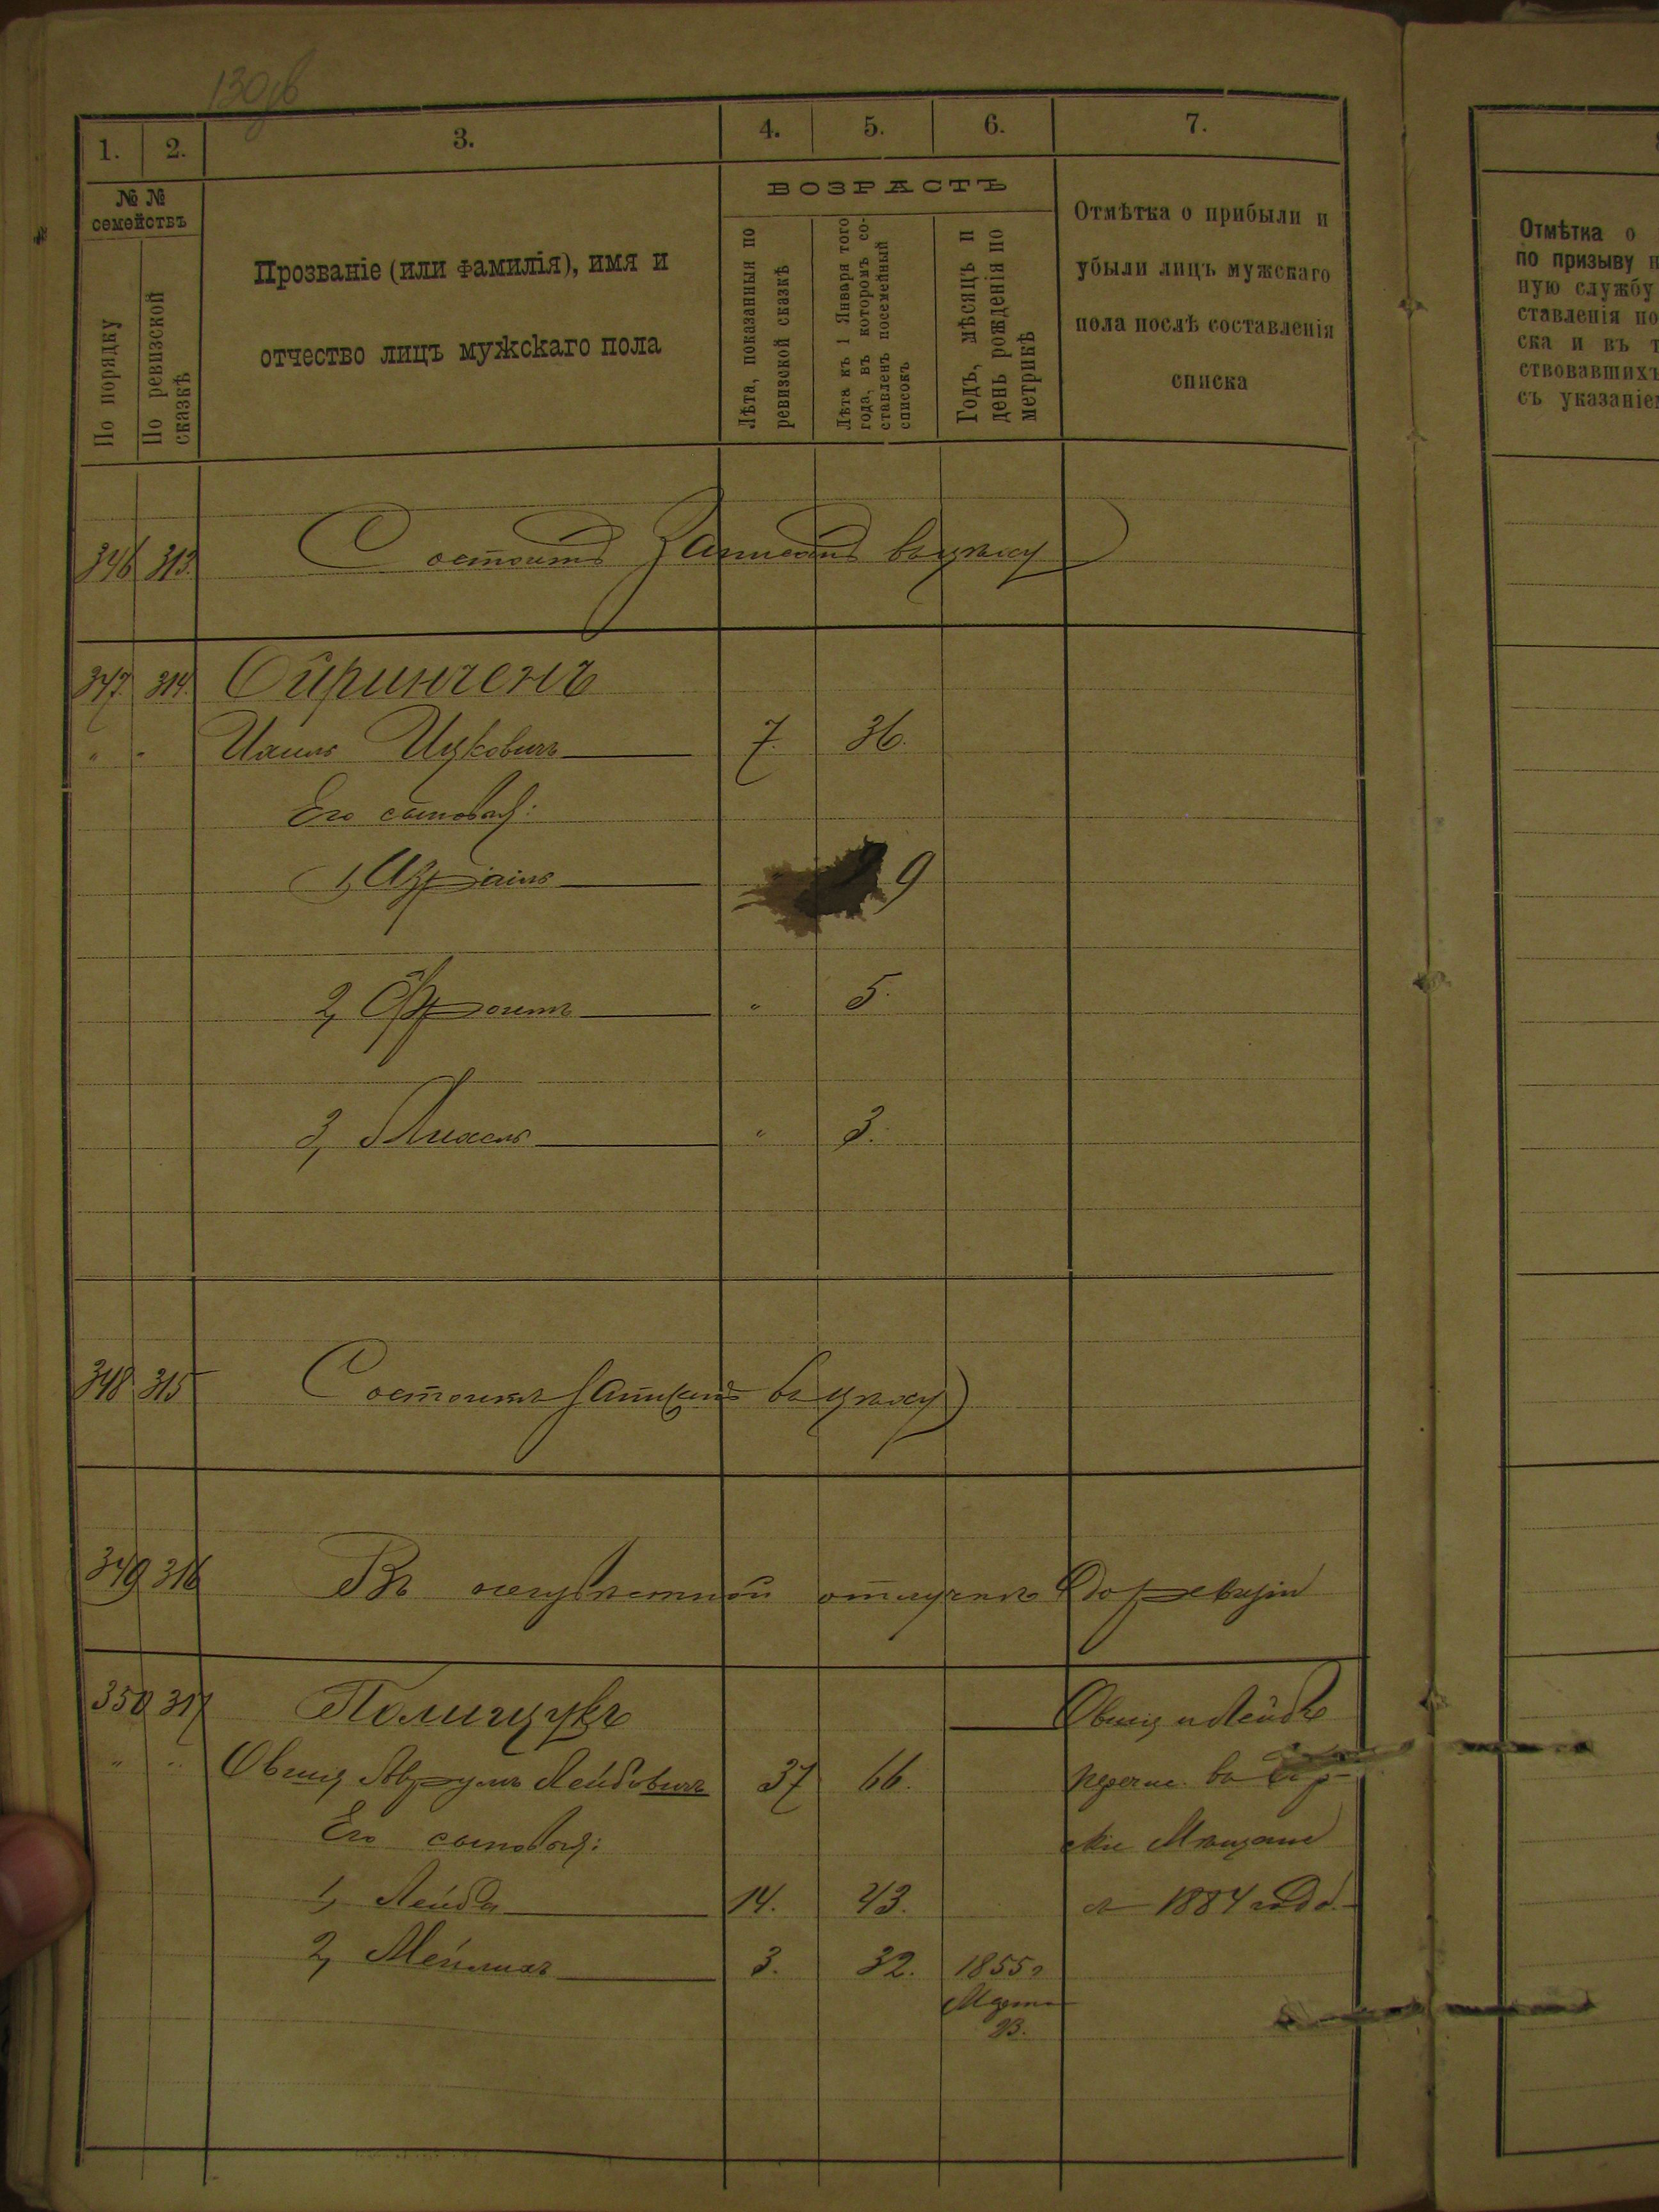 130 об
1. 2. 3. 4. 5. 6. 7.
№ № семействъ
По порядку
По ревизской сказкѣ
Прозваніе (или фамилія), имя и
отчество лицъ мужскаго пола
ВОЗРАСТЪ
Лѣта, показанныя по ревизской сказкѣ
Лѣта къ 1 Января того года, въ которомъ составленъ посемейный списокъ
Годъ, мѣсяцъ и день рожденія по метрикѣ
Отмѣтка о прибыли и
убыли лицъ мужскаго
пола послѣ составленія
списка
Отмѣтка о
по призыву
ную службу
ставленія по
ска и въ
ствовавшихъ
съ указаніе
346 313. Состоитъ Записанъ въ цеху
347. 314.
" " Ицковичъ 7. 36.
Его сыновья:
1, Израиль 9
2, 5.
3, " 3.
348 315 Состоитъ Записанъ въ цеху
349 316 Въ безызвѣстной отлучкѣ до ревизіи
350 317 Полищукъ Овшій и Лейба
" " Овшій Аврумъ Лейбовичъ 37 66. перечис. въ
Его сыновья: скіе Мѣщане
1, Лейба 14. 43. съ 1884 года.
2, Мейлихъ 3. 32. 1855 г
Марта